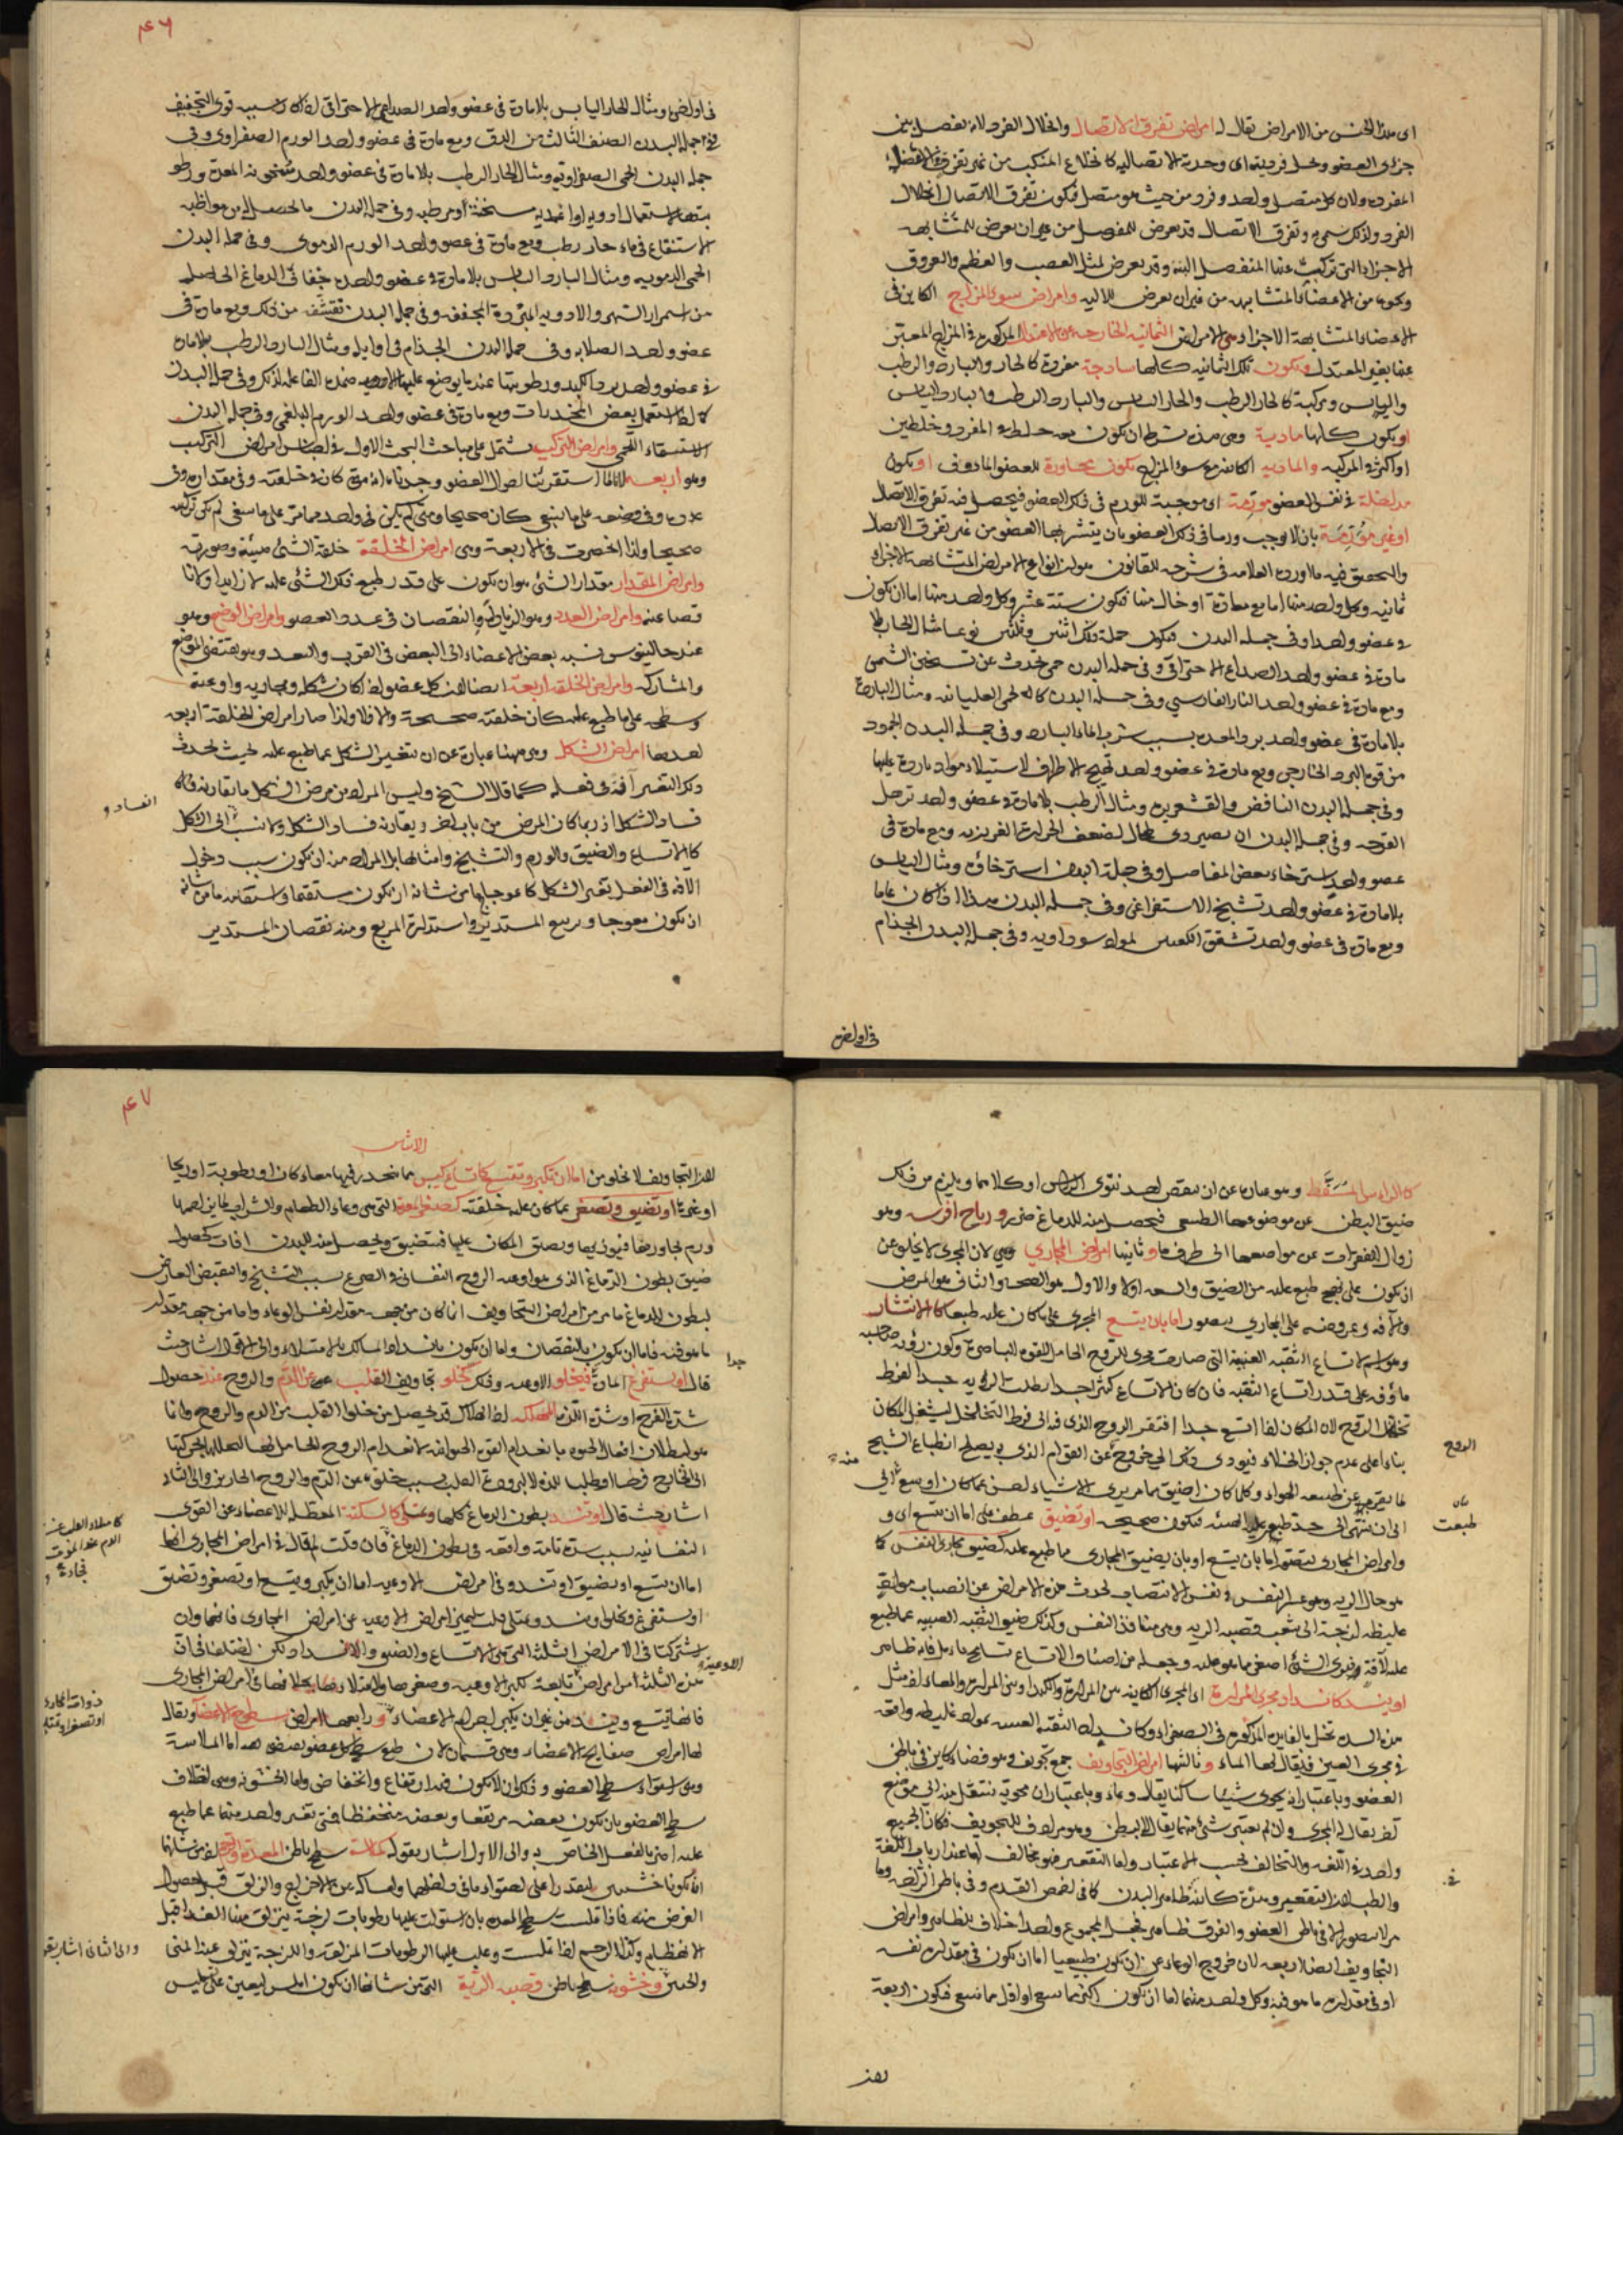 اى هذا الجنس من الامراض يقال له امراض تفرق الاتصال وانحلال الفرد لانه يفصل بين
جزئى العضو ويحل فرديته اى وحدته الاتصالية كانخلاع المنكب من غير تفرق فى الاعضاء
المفردة ولان كل متصل واحد وفرد من حيث هو متصل فيكون تفرق الاتصال انحلال
الفرد ولذلك سمى به وتفرق الاتصال قد يعرض للمفصل من غير ان يعرض للمتشابهة
الاجزاء التى تركبت عنها المفصل البتة وقد يعرض لمثل العصب والعظم والعروق
ونحوها من الاعضاء المتشابهة من غير ان يعرض للآلية وامراض سوء المزاج الكاين فى
الاعضاء المتشابهة الاجزاء وهى الامراض الثمانية الخارجة عن الاعتدال المذكورة فى المزاج المعبر
عنها بغير المعتدل ويكون تلك الثمانية كلها ساذجة مفردة كالحار والبارد والرطب
واليابس ومركبة كالحار الرطب والحار اليابس والبارد الرطب والبارد اليابس
او يكون كلها مادية وهى هذه بشرط ان يكون معه خلط المفرد وخلطين
او اكثر المركبة والمادية الكاينة مع سوء المزاج تكون مجاورة للعضو الماؤف او يكون
مداخلة فى نفس العضو مورمة اى موجبة للورم فى ذلك العضو فيحصل فيه تفرق الاتصال
او غير مورمة بان لا يوجب ورما فى ذلك العضو بان يتشربها العضو من غير تفرق الاتصال
والتحقيق فيه ما اورده العلامة فى شرحه للقانون هو ان انواع الامراض المتشابهة الاجزاء
ثمانية وكل واحد منها اما مع مادة او خال منها فيكون ستة عشر وكل واحد منها اما ان يكون
فى عضو واحد او فى جملة البدن فيكون جملة ذلك اثنين وثلثين نوعا مثال الحار بلا
مادة فى عضو واحد الصداع الاحتراقى وفى جملة البدن حمى يحدث عن تسخين الشمس
ومع مادة فى عضو واحد النار الفارسى وفى جملة البدن كالحمى الغليانية ومثال البارد
بلا مادة فى عضو واحد برد المعدة بسبب شرب الماء البارد وفى جملة البدن الجمود
من قوة البرد الخارجى ومع مادة فى عضو واحد تهيج الاطراف لاستيلاء مواد باردة عليها
وفى جملة البدن النافض والقشعريرة ومثال الرطب بلا مادة فى عضو واحد ترهل
القرحة وفى جملة البدن ان يصير وى حال لضعف الحرارة الغريزية ومع مادة فى
عضو واحد استرخاء بعض المفاصل وفى جملة البدن استرخاؤه ومثال اليابس
بلا مادة فى عضو واحد تشنج الاستفراغى وفى جملة البدن هذا اذا كان عاما
ومع مادة فى عضو واحد تشقق الكعبين لمواد سوداوية وفى جملة البدن الجذام
فى اوايله
۴۶
فى اوايله ومثال الحار اليابس بلا مادة فى عضو واحد الصداع الاحتراقى اذا كان سببه قوى التجفيف
وفى جملة البدن الصنف الثالث من الدق ومع مادة فى عضو واحد الورم الصفراوى وفى
جملة البدن الحمى الصفراوية ومثال الحار الرطب بلا مادة فى عضو واحد سخونة المعدة ورطو
بتها لاستعمال ادوية او اغذية مسخنة ومرطبة وفى جملة البدن ما يحصل له من مواظبة
الاستنقاع فى ماء حار رطب ومع مادة فى عضو واحد الورم الدموى وفى جملة البدن
الحمى الدموية ومثال البارد اليابس بلا مادة فى عضو واحد جفاف الدماغ الحاصل
من استمرار السهر والادوية المبردة المجففة وفى جملة البدن تقشف من ذلك ومع مادة فى
عضو واحد الصلابة وفى جملة البدن الجذام فى اوايله ومثال البارد الرطب بلا مادة
فى عضو واحد برد الكبد ورطوبتها عندما يوضع عليها الادوية ضمدة الفاعلة لذلك وفى جملة البدن
كما اذا استعمل بعض المخدرات ومع مادة فى عضو واحد الورم البلغمى وفى جملة البدن
الاستسقاء اللحمى وامراض التركيب يشتمل على مباحث البحث الاول فى اجناس امراض التركيب
وهو اربعة لانا لما استقرينا احوال العضو وجدناه انه متى كان فى خلقته وفى مقداره وفى
عدده وفى وضعه على ما ينبغى كان صحيحا ومتى لم يكن فى واحد مما مر على ما ينبغى لم يكن تركيبه
صحيحا ولذا انحصرت فى الاربعة وهى امراض الخلقة خلقة الشئ هيئته وصورته
وامراض المقدار مقدار الشئ هو ان يكون على قدر طبيعى ذلك الشئ عليه لا زايدا ولا نا
قصا عنه وامراض العدد وهو الزيادة والنقصان فى عدد العضو وامراض الوضع وهو
عند جالينوس نسبة بعض الاعضاء الى البعض فى القرب والبعد وهو يقتضى الموضع
والمشاركة وامراض الخلقة اربعة ايضا لان كل عضو اذا كان شكله ومجاريه واوعيته
وسطحه على ما طبع عليه كان خلقته صحيحة والا فلا ولذا صار امراض الخلقة اربعة
احدها امراض الشكل وهى ههنا عبارة عن ان يتغير الشكل عما طبع عليه بحيث يحدث
ذلك التغير آفة فى فعله كما قال الشيخ وليس المراد من مرض الشكل ما يقارنه فان
فساد الشكل اذ ربما كان المرض من باب آخر ويقارنه فساد الشكل ولا ينسب الى الشكل
كالاتساع والضيق والورم والتشنج وامثالها بل المراد منه ان يكون سبب دخول
الآفة فى الفعل بتغير الشكل كاعوجاج ما من شانه ان يكون مستقيما واستقامة ما من شانه
ان يكون معوجا وتربيع المستدير واستدارة المربع ومنه نقصان المستدير
الفساد و
كالراس المسفط وهو عبارة عن ان ينقص احد نتوى الراس او كلاهما ويلزم من ذلك
ضيق البطن عن موضوعها الطبيعى فيحصل منه للدماغ ضرر ورياح افرسه وهو
زوال الفقرات عن مواضعها الى طرف ما وثانيها امراض المجارى وهى لان المجرى لا يخلو عن
ان يكون على نهج طبع عليه من الضيق والسعة اولا والاول هو الصحة والثانى هو المرض
والآفة وعروضه على المجارى يتصور اما بان يتسع المجرى على ما كان عليه طبعا كالانتشار
وهو اسم لاتساع الثقبة العنبية التى صارت مجرى للروح الحامل للقوة الباصرة وكون رؤية صاحبه
ماؤفة على قدر اتساع الثقبة فان كان الاتساع كثيرا جدا بطلت الرؤية جدا لفرط
تخلخل الروح لان المكان اذا اتسع جدا افتقر الروح الذى فيه الى فرط التخلخل ليشغل المكان
بناء على عدم جواز الخلاء فيؤدى ذلك الى خروجه عن القوام الذى به يصلح انطباع الشبح
لما يقربه عن طبيعة الهواء وكلما كان اضيق مما مر يرى الاشياء احسن مما كان اوسع الى
الى ان ينتهى الى حد طبع عليه الهيئة فيكون صحيحة او تضيق عطف على اما ان تتسع اى و
وامراض المجارى يتصور اما بان يتسع او بان يضيق المجارى مما طبع عليه كضيق مجارى النفس كا
هو حال الربو وهو عسر النفس ونفس الانتصاب يحدث هذه الامراض عن انصباب مواد
غليظة لزجة الى شعب قصبة الرية وهى منافذ النفس وكذلك ضيق الثقبة العنبية عما طبع
عليه لآفة ويرى الشئ اصغر مما هو عليه وجعله من اصناف الاتساع تسامح بل فاسد ظاهر
او ينسد كانسداد مجرى المرارة اى المجرى الكاينة بين المرارة والكبد او بين المرارة والمعاء اذ مثل
هذه السدة تخل بالفايدة المذكورة فى الصفراء وكانسداد الثقبة العنبية بمواد غليظة واقعة
فى مجرى العين فيقال لها الماء وثالثها امراض التجاويف جمع تجويف وهو فضاء كاين فى باطن
العضو وباعتبار انه يحوى شيئا ساكنا يقال وعاء وباعتبار ان محويه ينتقل منه الى موضع
آخر يقال له المجرى وان لم يعتبر شئ منهما يقال له البطن وهو مرادف للتجويف فكان الجميع
واحد فى اللغة والتخالف بحسب الاعتبار واما التقعير فهو يخالف لها عند ارباب اللغة
والطب لان التقعير وهدة كاينة لظاهر البدن كما فى اخمص القدم وفى باطن الراحة وما
مر لا يتصور الا فى باطن العضو والفرق ظاهر فجعل المجموع واحدا خلاف للظاهر وامراض
التجاويف ايضا اربعة لان خروج الوعاء عن ان يكون طبيعيا اما ان يكون فى مقدار نفسه
او فى مقدار ما هو فيه وكل واحد منهما اما ان يكون اكثر مما ينبغى او اقل مما ينبغى فيكون اربعة
الروح
طبعت
منه
۴۷
هذه التجاويف لا تخلو من اما ان تكبر وتتسع كاتساع كيس الانثيين مما ينحدر فيها معاء كان او رطوبة او ريحا
او غيرها او تضيق وتصغر عما كان عليه خلقته كصغر المعدة التى هى وعاء الطعام والشراب لما يزاحمها
ورم مجاور لها فيؤذيها ويضيق المكان عليها فتضيق ويحصل منه للبدن آفات كحصول
ضيق بطون الدماغ الذى هو اوعية الروح النفسانى والصرع بسبب التشنج والتقبض العارض
لبطون الدماغ ما مر من امراض التجاويف انما كان من جهة مقدار نفس الوعاء واما من جهة مقدار
ما هو فيه فاما ان يكون بالنقصان واما ان يكون بانسداد المسالك بالامتلاء والى الاول اشار حيث
قال او يستفرغ المادة فيخلو الاوعية وذلك كخلو تجاويف القلب عن الدم والروح عند حصول
شدة الفرح او شدة اللذة المهلك اذ الهلاك قد يحصل من خلو القلب من الدم والروح وانما
هو لبطلان افعال الحيوة بانعدام القوة الحيوانية بانعدام الروح الحامل لها لتحللها لحركتها
الى الخارج فرحا وطلبا للذة لا لبرودة القلب بسبب خلوه عن الدم والروح الحارين والى الثانى
اشار حيث قال او تنسد بطون الدماغ كلها وتمتلى كالسكتة المعطلة للاعضاء عن القوى
النفسانية بسبب سدة تامة واقعة فى بطون الدماغ فان قلت لم قال فى امراض المجارى انها
اما ان تتسع او تضيق او تنسد وفى امراض الاوعية اما ان يكبر ويتسع او تصغر وتضيق
او يستفرغ ويخلو او ينسد ويمتلى قلت ليميز امراض الاوعية عن امراض المجارى فانهما وان
اشتركتا فى الامراض الثلثة التى هى الاتساع والضيق والانسداد ولكن اختلفا فى ان
هذه الثلثة امراض تابعة لكبر الاوعية وصغرها وامتلائها بخلافها فى امراض المجارى
فانها يتسع وينسد من غير ان يكبر اجرام الاعضاء ورابعها امراض سطوح الاعضاء ويقال
لها امراض صفايح الاعضاء وهى قسمان لان طبع سطح كل عضو بصفة هى اما الملاسة
وهى استواء سطح العضو وذلك ان لا يكون فيه ارتفاع وانخفاض واما الخشونة وهى اختلاف
سطح العضو بان يكون بعضه مرتفعا وبعضه منخفضا فمتى تغير واحد منهما عما طبع
عليه اضر بالفعل الخاص به والى الاول اشار بقوله كملاسة سطح باطن المعدة والرحم اذ من شانها
ان يكونا خشنين ليقدرا على احتواء ما فى داخلها وامساكه عن الانزلاق والزلق قبل حصول
الغرض منه فاذا ملست سطح المعدة بان استولت عليها رطوبات لزجة ينزلق منها الغذاء قبل
الانهضام وكذا الرحم اذا ملست وغلب عليها الرطوبات المزلقة واللزجة ينزلق عنها المنى
والجنين وخشونة سطح باطن قصبة الرية التى من شانها ان يكون املس ليعين على
جدا
كاملاء القلب عن
الدم عند الموت
فجاءة
الاوعية
والى الثانى اشار بقو